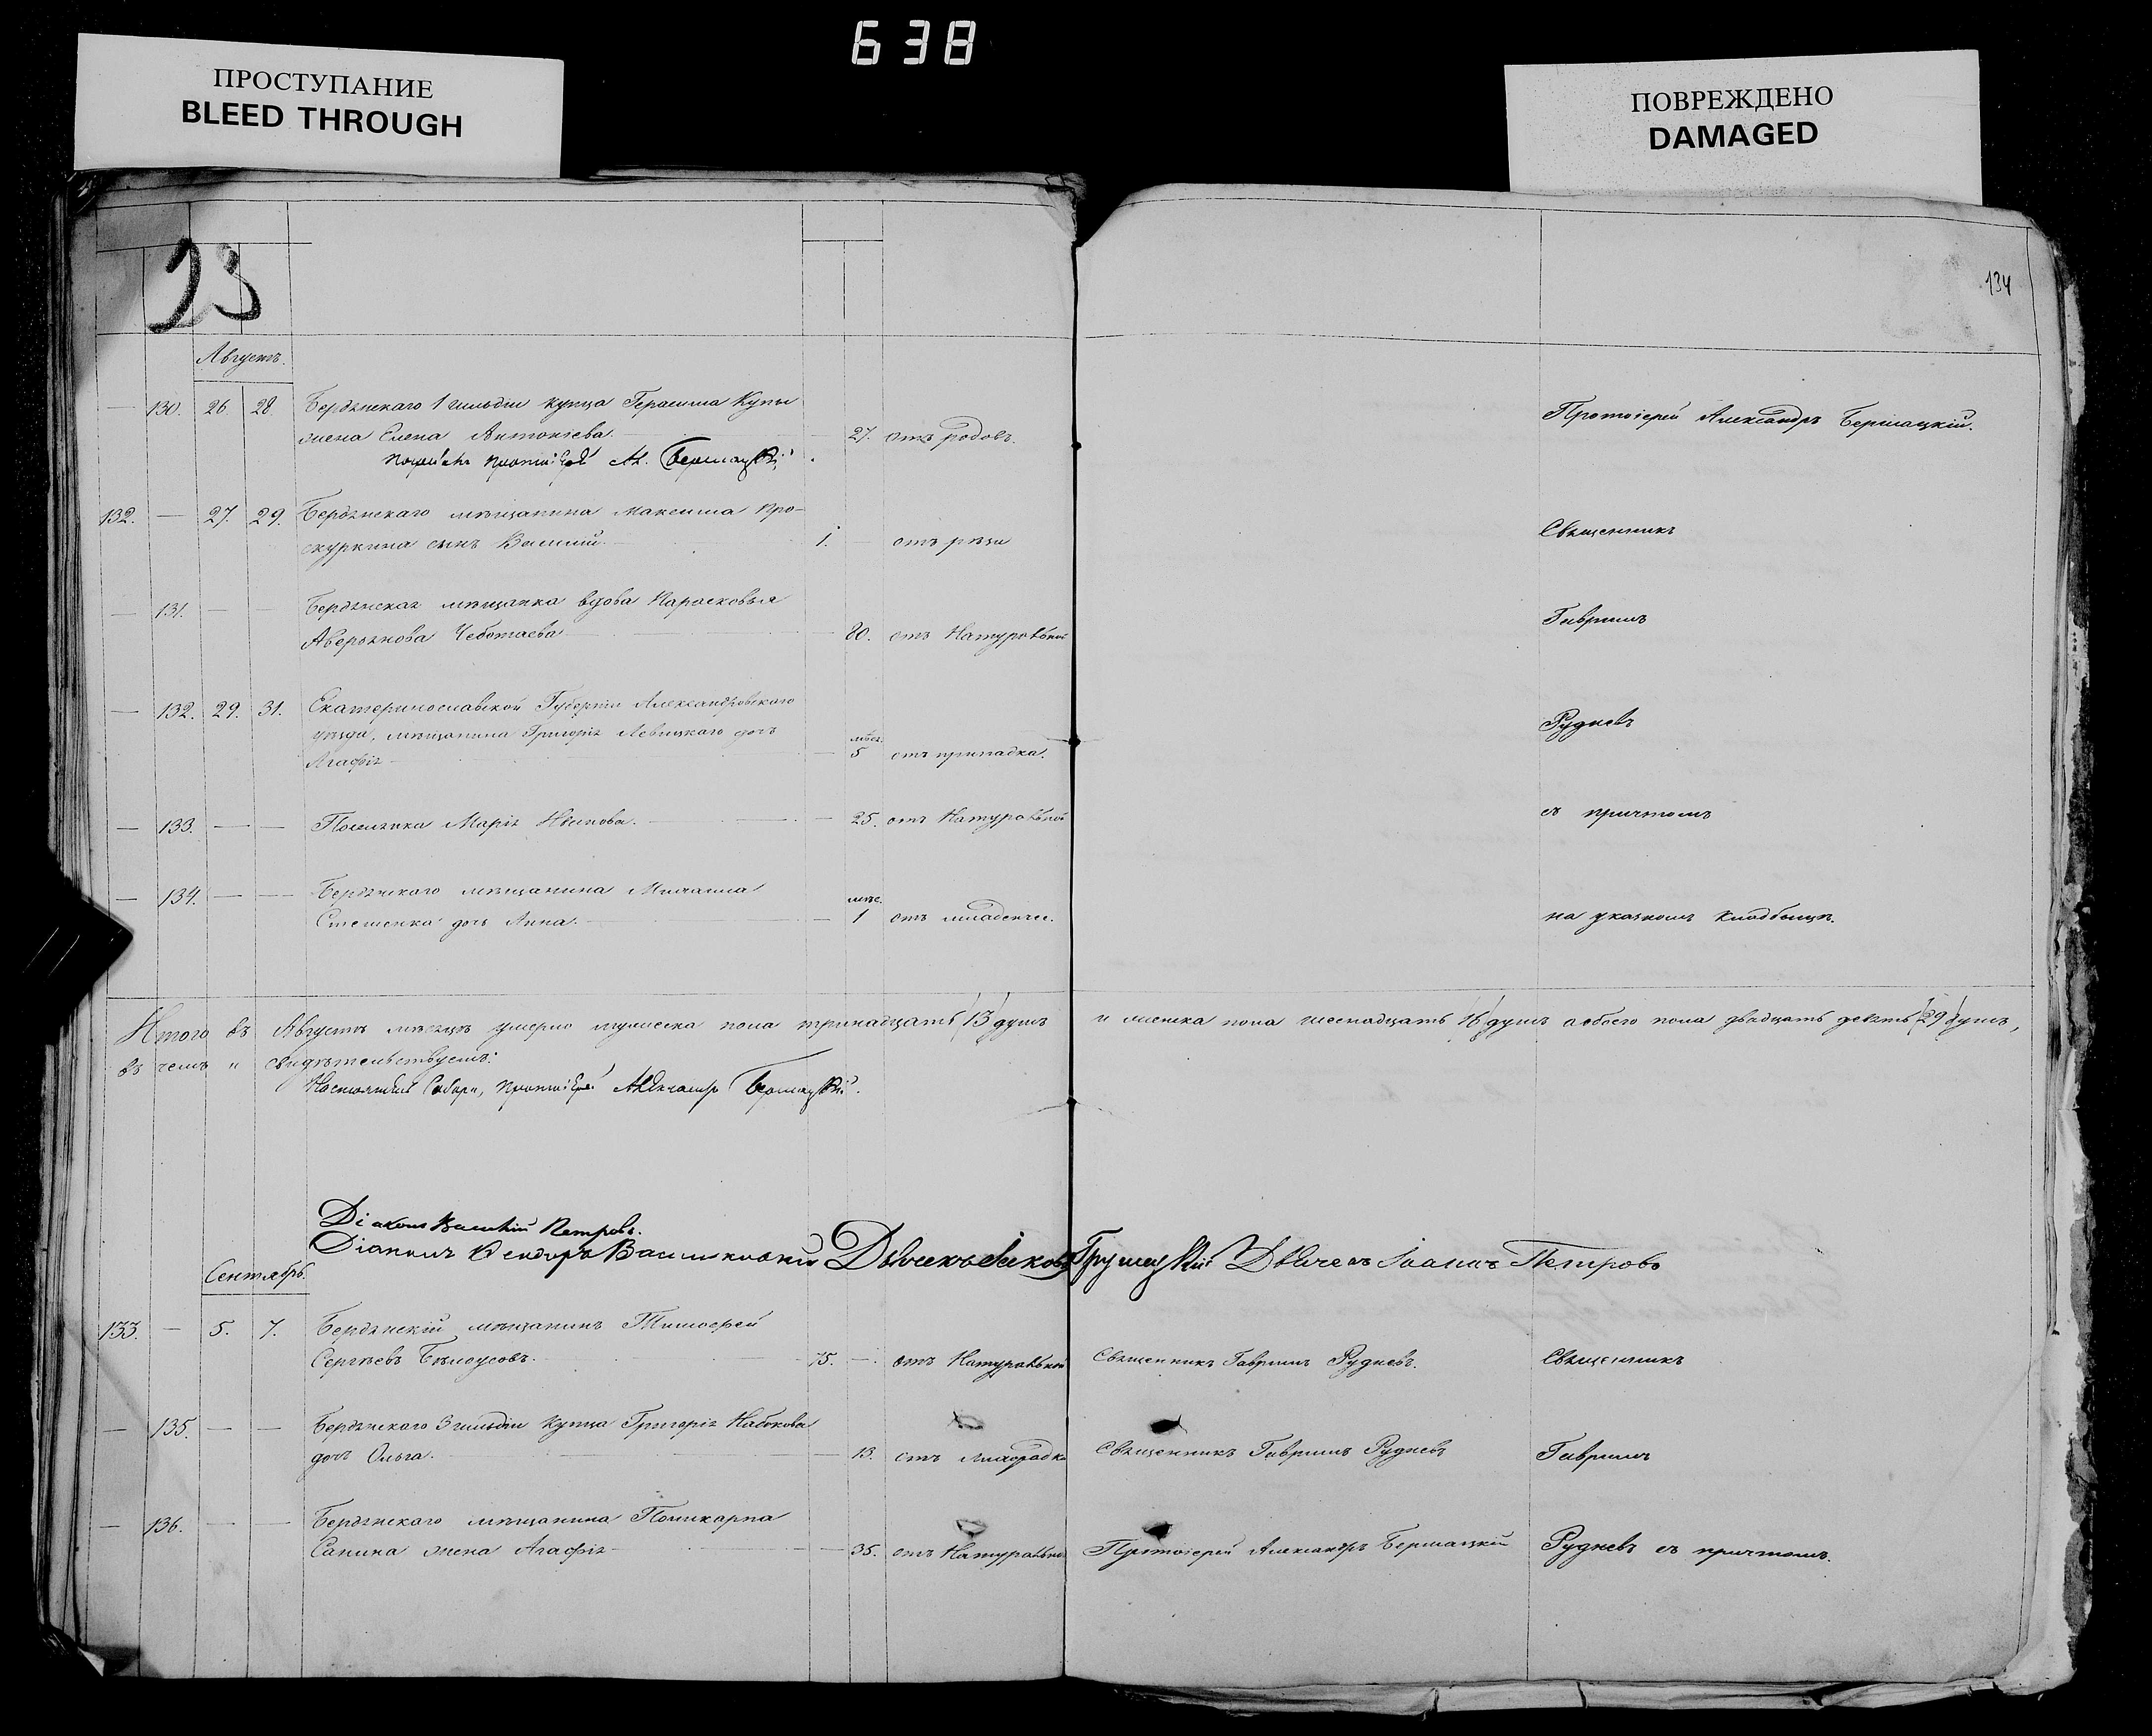 638
ПРОСТУПАНИЕ
BLEED THROUGH
ПОВРЕЖДЕНО
DAMAGED
134
Августъ.
130. 26. 28. Бердянскаго 1 гильдіи купца Герасима
жена Елена Антоніева. 27. отъ родовъ. Протоіерей Александръ Бершацкій.
132. 27. 29. Бердянскаго мѣщанина Максима Про-
скуркина сынъ Василій. 1. отъ рѣзи Священникъ
131. Бердянская мѣщанка вдова Парасковья
Аверьянова Чеботаева 80. отъ Натуральной Гавріилъ
132. 29. 31. Екатеринославской Губерніи Александровскаго
уѣзда, мѣщанина Григорія Левицкаго дочь
Агафія мѣс. 5 отъ припадка. Рудневъ
133. Марія 25. отъ Натуральной съ причтомъ
134. Бердянскаго мѣщанина Михаила
Стешенка дочь Анна. мѣс. 1 отъ младенчес. на указномъ кладбищѣ.
Итого въ Августѣ мѣсяцѣ умерло мужеска пола тринадцать (13) душъ и женска пола шестнадцать (16) душъ а обоего пола двадцать девять (29) душъ,
въ чемъ и свидѣтельствуемъ:
Настоятель Собора, протоіерей Александръ Бершацкій.
Діаконъ Василій Петровъ.
Діаконъ Ѳеодоръ Васильковскій Дьячекъ Іаковъ Грушецкій Дьячекъ Іоаннъ Петровъ
Сентябрь.
133. 5. 7. Бердянскій мѣщанинъ Тимофей
Сергѣевъ Бѣлоусовъ. 75. отъ Натуральной Священникъ Гавріилъ Рудневъ. Священникъ
135. Бердянскаго 3 гильдіи купца Григорія Набокова
дочь Ольга. 13. отъ лихорадки Священникъ Гавріилъ Рудневъ Гавріилъ
136. Бердянскаго мѣщанина Поликарпа
Сапина жена Агафія 35. отъ Натуральной Протоіерей Александръ Бершацкій Рудневъ съ причтомъ.